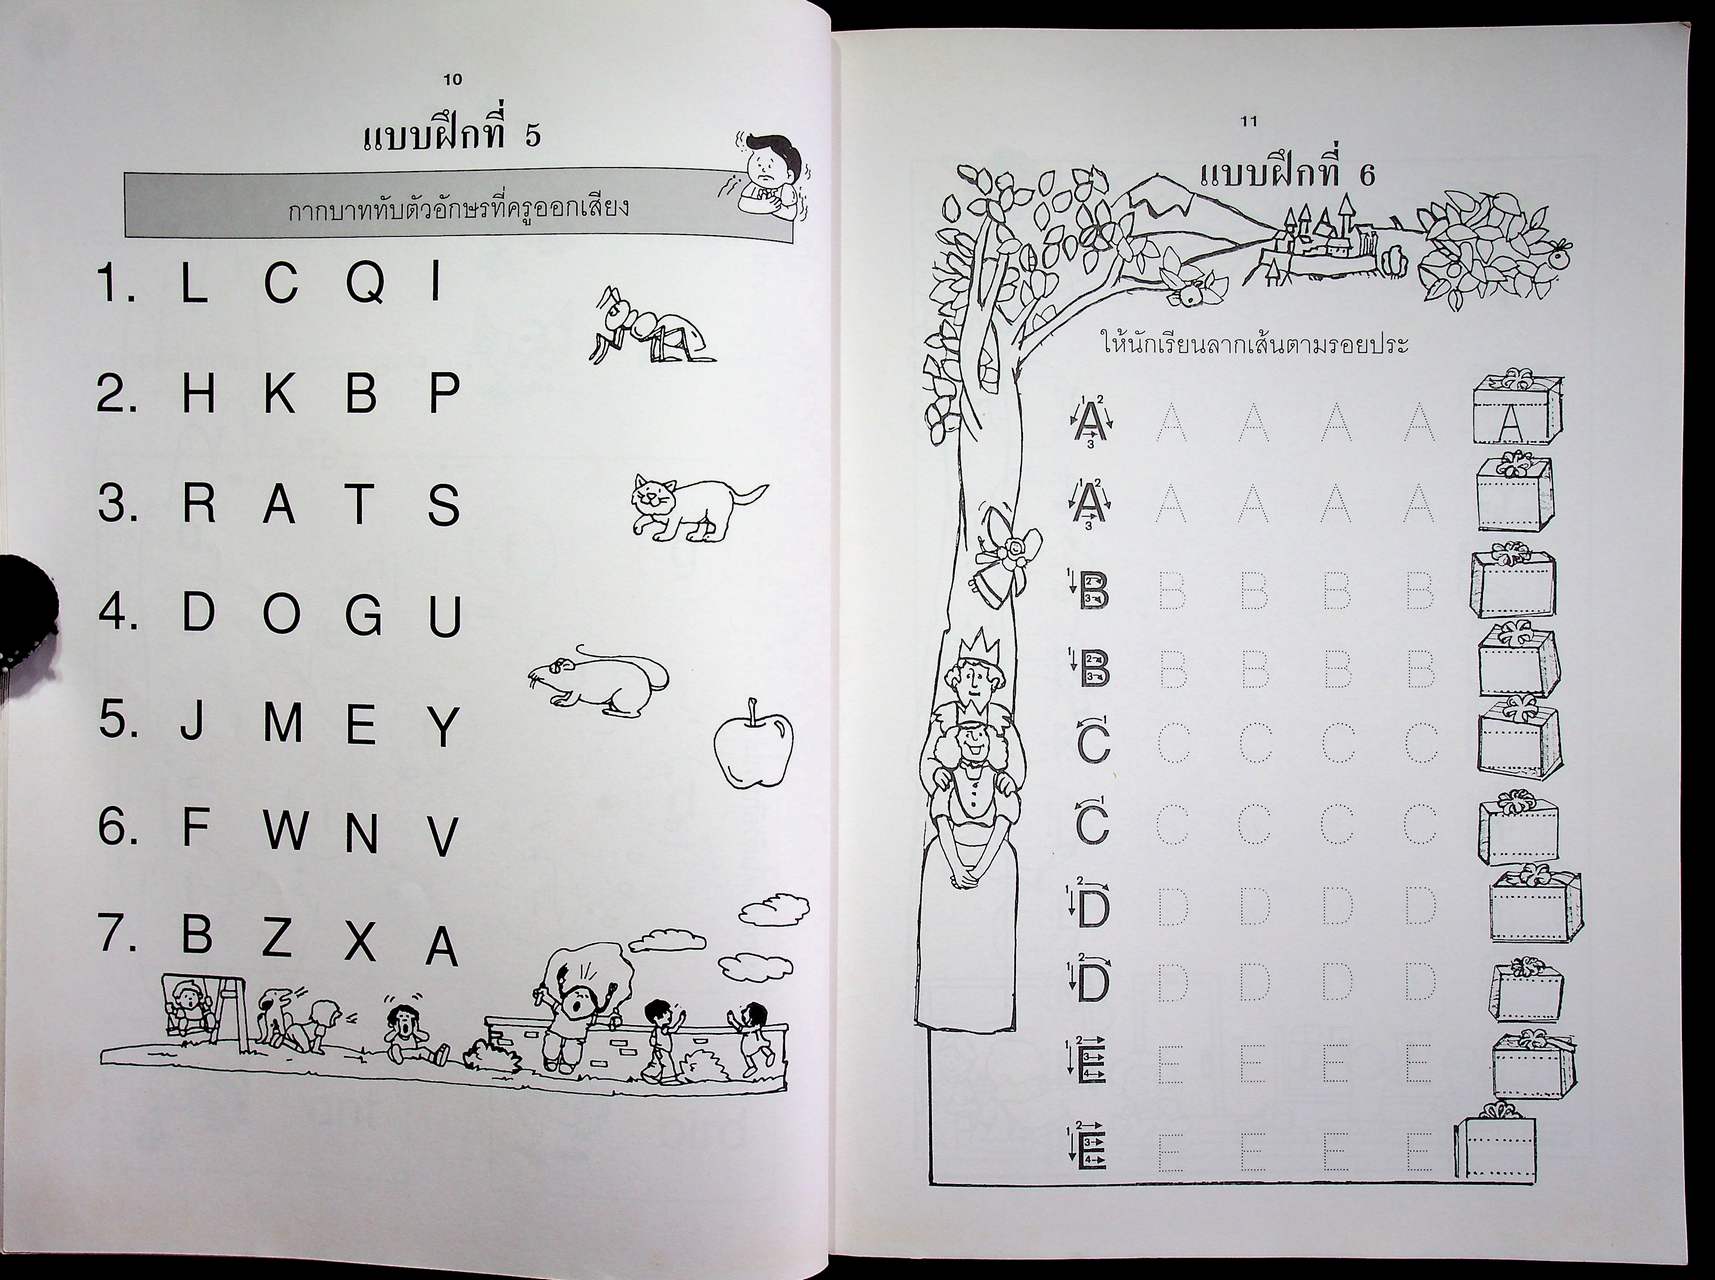 10
แบบฝึกที่ 5
กากบาททับตัวอักษรที่ครูออกเสียง
1. L C Q I
2. H K B P
3. R A T S
4. D O G U
5. J M E Y
6. F W N V
7. B Z X A
11
แบบฝึกที่ 6
ให้นักเรียนลากเส้นตามรอยประ
A A A A A A
A A A A A
B B B B B
B B B B B
C C C C C
C C C C C
D D D D D
D D D D D
E E E E E
E E E E E